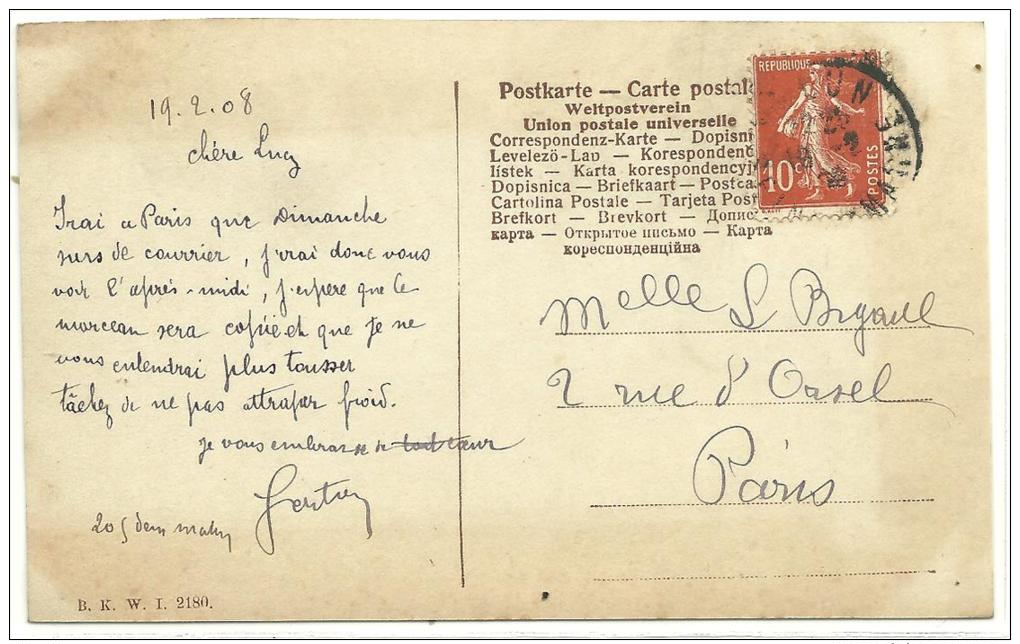 19.2.08
chère Lucy
J'irai a Paris que Dimanche
de courrier, j'irai donc vous
voir l'après-midi, j'espere que le
morceau sera copié et que je ne
vous entendrai plus tousser
tâchez de ne pas attraper froid.
je vous embrasse de tout cœur
B. K. W. I. 2180.
Postkarte — Carte postale
Weltpostverein
Union postale universelle
Correspondenz-Karte — Dopisni
Levelező-Lap — Korespondenč
lístek — Karta korespondencyj
Dopisnica — Briefkaart — Postca
Cartolina Postale — Tarjeta Post
Brefkort — Brevkort — Допис
карта — Открытое письмо — Карта
кореспонденційна
REPUBLIQUE
10c
POSTES
Melle L
2 rue d'Orsel
Paris